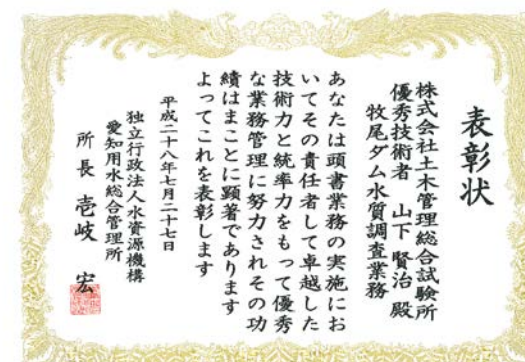 表彰状
株式会社土木管理総合試験所
優秀技術者 山下 賢治 殿
牧尾ダム水質調査業務
あなたは頭書業務の実施にお
いてその責任者して卓越した
技術力と統率力をもって優秀
な業務管理に努力されその功
績はまことに顕著であります
よってこれを表彰します
平成二十八年七月二十七日
独立行政法人水資源機構
愛知用水総合管理所
所長 壱岐 宏